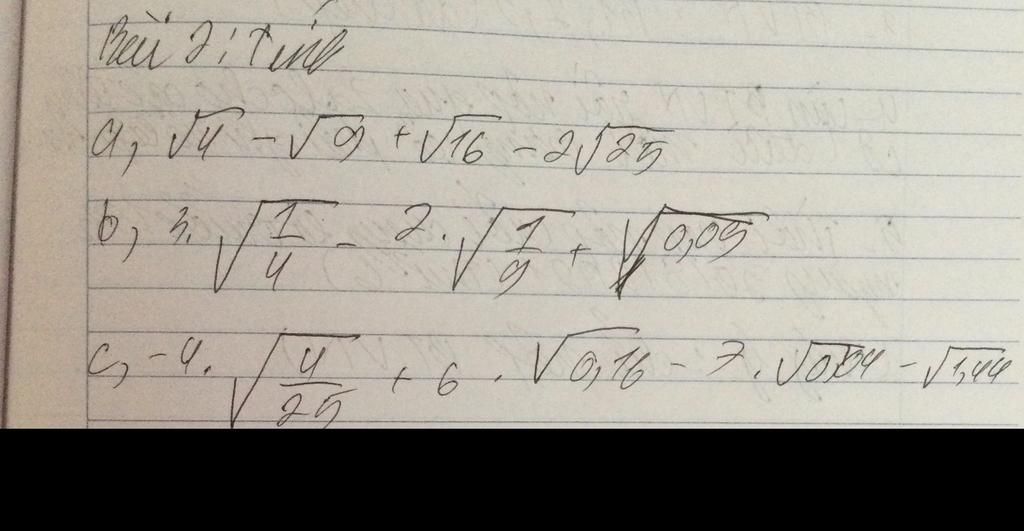 Bài 2: Tính
a, √4 - √9 + √16 - 2√25
b, 3.√(1/4) - 2.√(1/9) + √0,09
c, -4.√(4/25) + 6.√0,16 - 7.√0,04 - √1,44